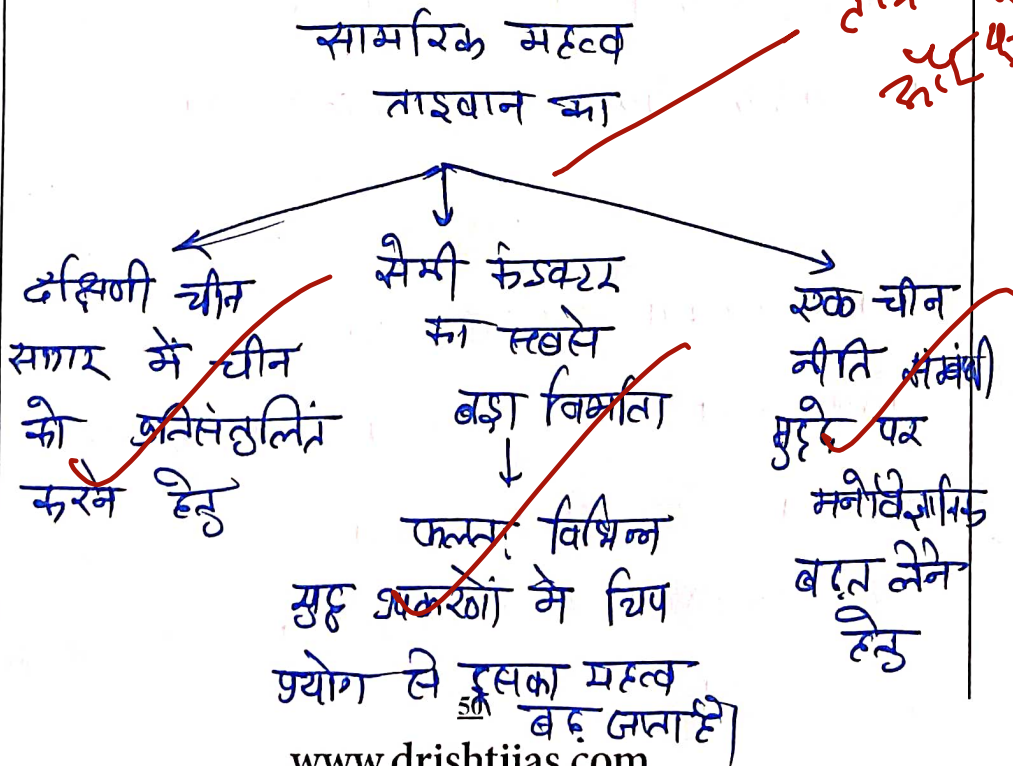 सामरिक महत्व
ताइवान का
दक्षिणी चीन
सागर में चीन
को प्रतिसंतुलित
करने हेतु
सेमी कंडक्टर
का सबसे
बड़ा निर्माता
फलतः विभिन्न
युद्ध उपकरणों में चिप
प्रयोग से इसका महत्व
बढ़ जाता है।
एक चीन
नीति संबंधी
मुद्दे पर
मनोविज्ञानिक
बढ़त लेने
हेतु
50
www.drishtiias.com